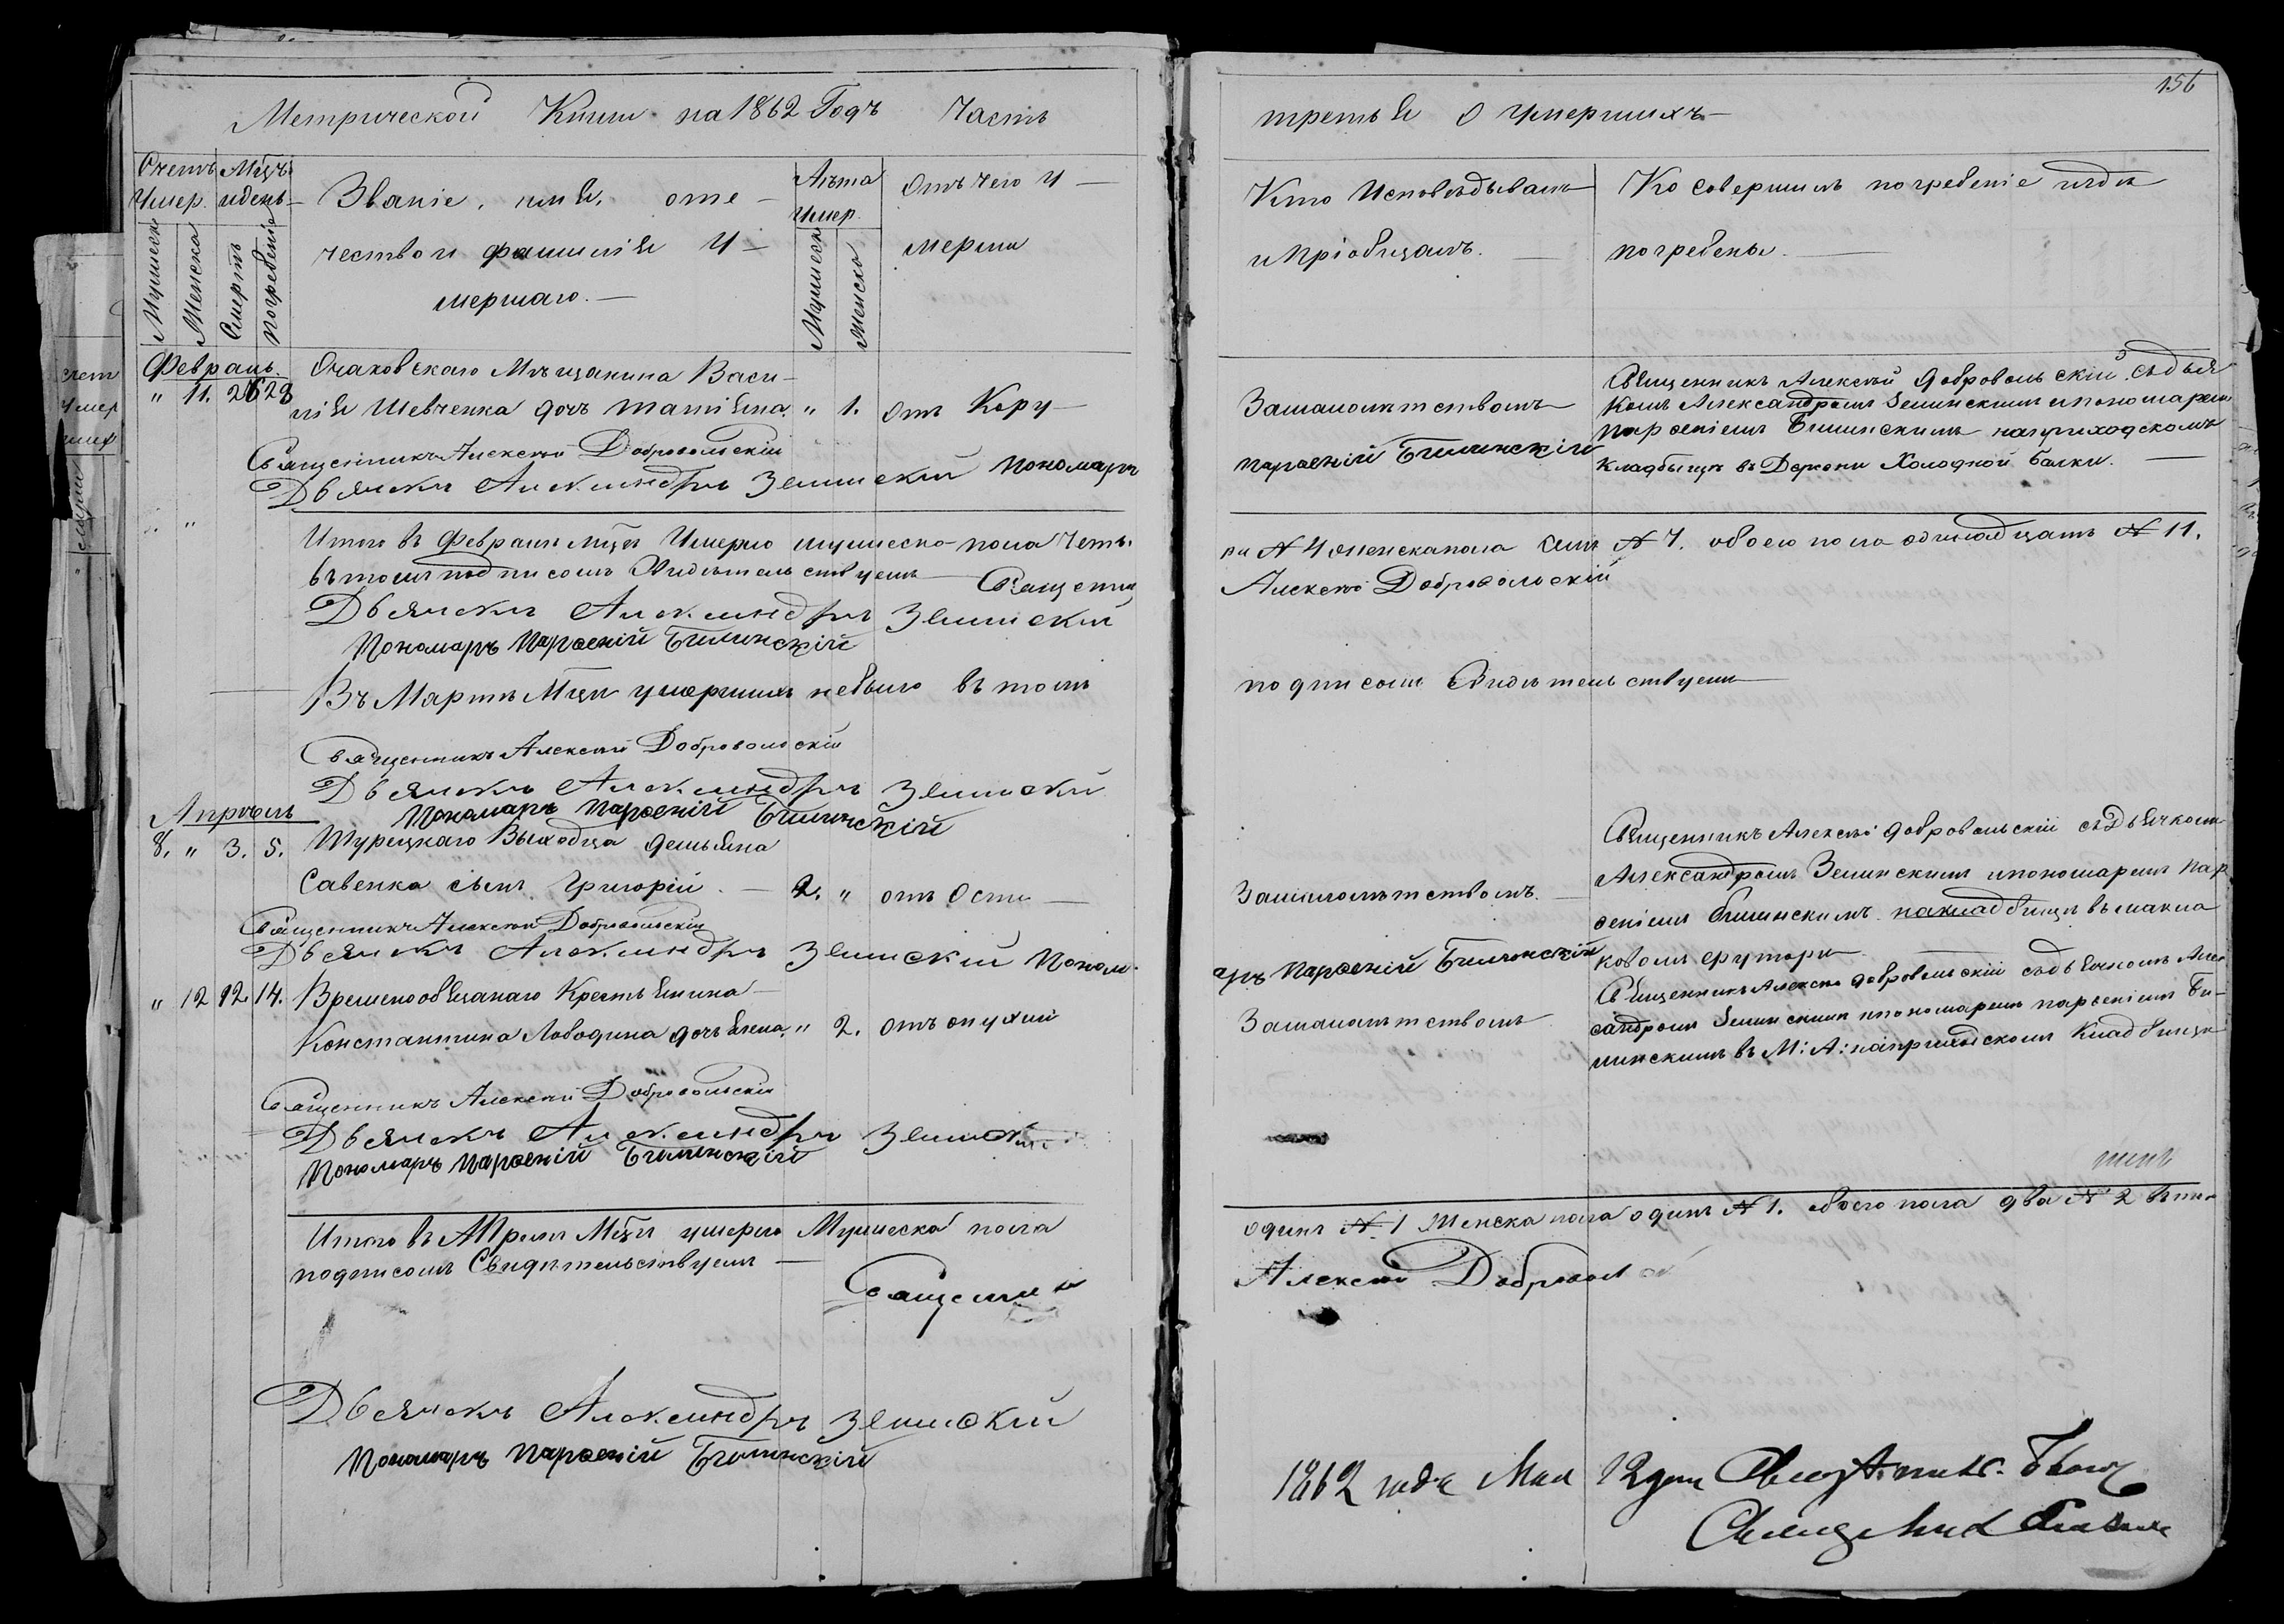 156
Метрической Книги на 1862 Годъ Часть
третья о умершихъ
Счетъ Умер.
Мцъ и день
Званіе, имя, отечество и фамилія Умершаго.
Лѣта Умер.
Отъ чего Умерли
Кто Исповѣдывалъ и Пріобщалъ.
Кто совершилъ погребеніе и гдѣ погребены.
Мужеска
Женска
Смерть
Погребенія
Мужеска
Женска
Февраль.
" 11. 26 28
Очаковскаго Мѣщанина Васи-
лія Шевченка дочь Татіяна. " 1. отъ Кору
Замалолѣтствомъ
Священникъ Алексѣй Добровольскій съ дья
комъ Александромъ Зелинскимъ и пономаремъ
Парѳеніемъ Билинскимъ на приходскомъ
кладбищѣ въ Деревни Холодной Балки.
Священникъ Алексѣй Добровольскій
Дьячекъ Александръ Зелинскій Пономарь
Парѳеній Билинскій
Итого въ Февралѣ Мцѣ Умерло мужеска пола Четы-
ри № 4 женска пола семь № 7. обоего пола одинадцать № 11.
въ томъ подписомъ Свидѣтельствуемъ Священникъ
Алексѣй Добровольскій
Дьячекъ Александръ Зелинскій
Пономарь Парѳеній Билинскій
Въ Мартѣ Мцѣ умершихъ небыло въ томъ
подписомъ Свидѣтельствуемъ
Священникъ Алексѣй Добровольскій
Дьячекъ Александръ Зелинскій
Пономарь Парѳеній Билинскій
Апрѣль
8. " 3. 5. Турецкаго Выходца Демьяна
Савенка сынъ Григорій. 2. " отъ Оспи
Замалолѣтствомъ.
Священникъ Алексѣй Добровольскій съ Дьячкомъ
Александромъ Зелинскимъ и пономаремъ Пар
ѳеніемъ Билинскимъ на кладбищѣ въ макла
ковомъ хуторѣ
Священникъ Алексѣй Добровольскій
Дьячекъ Александръ Зелинскій Поном
арь Парѳеній Билинскій
" 12 12. 14. Временообязанаго Крестьянина
Константина Лободина дочь Елена. " 2. отъ опухли
Замалолѣтствомъ
Священникъ Алексѣй Добровольскій съ дьячкомъ Алек
сандромъ Зелинскимъ и пономаремъ парѳеніемъ Би-
линскимъ въ М: А: на приходскомъ Кладбищѣ
Священникъ Алексѣй Добровольскій
Дьячекъ Александръ Зелинскій
Пономарь Парѳеній Билинскій
Итого въ Апрелѣ Мцѣ умерло Мужеска пола
одинъ № 1 Женска пола одинъ № 1. обоего пола два № 2 въ томъ
подписомъ Свидѣтельствуемъ
Священни
Алексѣй Добровол
Дьячекъ Александръ Зелинскій
Пономарь Парѳеній Билинскій
1862 года Мая 12 дня